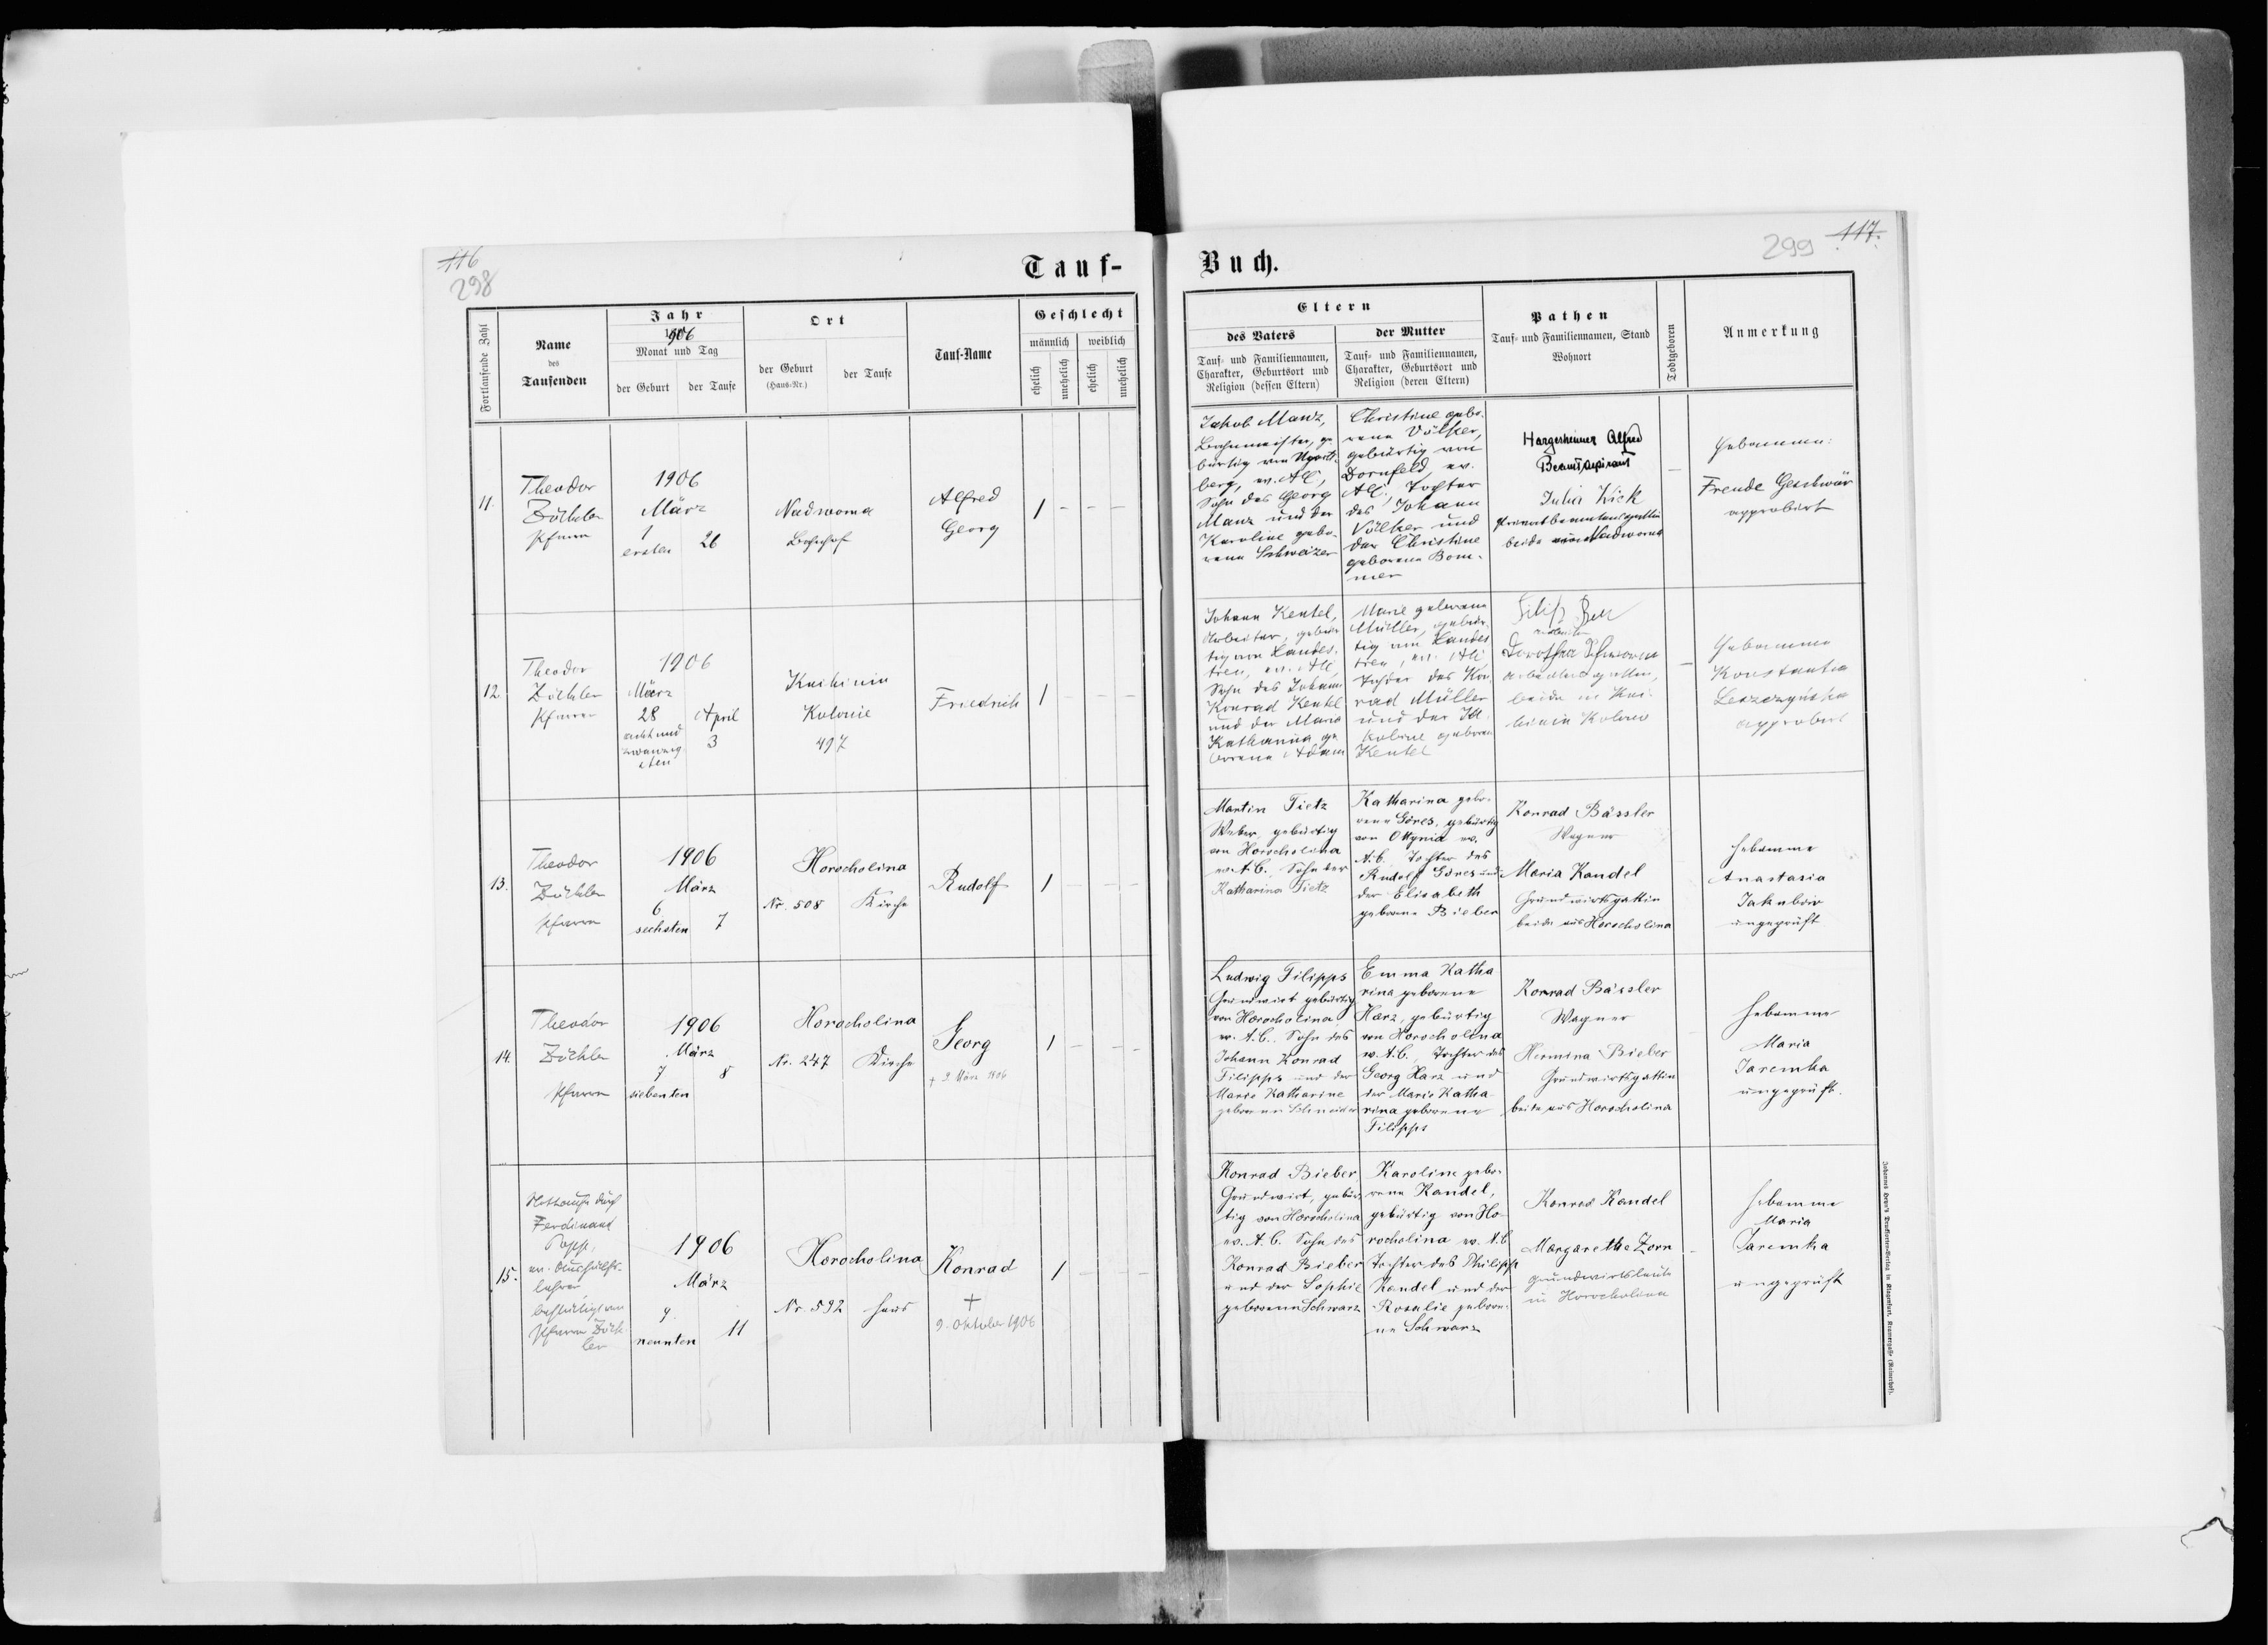 116
298
Tauf-
Fortlaufende Zahl
Name
des
Taufenden
Jahr
1906
Monat und Tag
der Geburt
der Taufe
Ort
der Geburt
(Haus-Nr.)
der Taufe
Tauf-Name
Geschlecht
männlich
weiblich
ehelich
unehelich
ehelich
unehelich
11.
Theodor
Zöckler
Pfarrer
1906
März
1
ersten
26
Nadworna
Bahnhof
Alfred
Georg
1 - - -
12.
Theodor
Zöckler
Pfarrer
1906
März
28
acht und
zwanzig
sten
April
3
Knihinin
Kolonie
497
Friedrich
1 - - -
13.
Theodor
Zöckler
Pfarrer
1906
März
6
sechsten
7
Horocholina
Nr. 508
Kirche
Rudolf
1 - - -
14.
Theodor
Zöckler
Pfarrer
1906
März
7
siebenten
8
Horocholina
Nr. 247
Kirche
Georg
† 9. März 1906
1 - - -
15.
Nottaufe durch
Ferdinand
Popp,
ev. Aushülfs-
lehrer
bestätigt von
Pfarrer Zöck
ler
1906
März
9.
neunten
11
Horocholina
Nr. 592
Haus
Konrad
†
9. Oktober 1906
1 - - -
Buch.
299
117.
Eltern
des Vaters
Tauf- und Familiennamen,
Charakter, Geburtsort und
Religion (dessen Eltern)
der Mutter
Tauf- und Familiennamen,
Charakter, Geburtsort und
Religion (deren Eltern)
Pathen
Tauf- und Familiennamen, Stand
Wohnort
Todtgeboren
Anmerkung
Jakob Manz,
Bahnmeister, ge
bürtig von
berg, ev. AC,
Sohn des Georg
Manz und der
Karoline gebo-
rene Schweizer
Christine gebo-
rene Völker,
gebürtig von
Dornfeld, ev.
AC, Tochter
des Johann
Völker und
der Christine
geborene Bom-
mer
Hargesheimer Alfred
Beamtaspirant
Julia Kick
Privatbeamtensgattin
beide Nadworna
-
Hebamme:
Freude Geschwür
approbirt
Johann Kentel,
Arbeiter, gebür
tig von Landes-
treu, ev. AC
Sohn des Johann
Konrad Kentel
und der Maria
Katharina ge
borene Adam
Marie geborene
Müller, gebür-
tig von Landes
treu, ev. AC
Tochter des Kon
rad Müller
und der Ja
kobine geboren
Kentel
Filip
Dorothea
Arbeitersgattin,
beide in Kni-
hinin Kolonie
-
Hebamme
Konstantia
Leszczyńska
approbirt
Martin Tietz
Weber, gebürtig
von Horocholina
ev. A.C. Sohn der
Katharina Tietz
Katharina gebo-
rene Göres, gebürtig
von Ottynia ev.
A.C. Tochter des
Rudolf Göres und
der Elisabeth
geborene Bieber
Konrad Bässler
Wagner
Maria Kandel
Grundwirtsgattin
beide aus Horocholina
Hebamme
Anastasia
Jakubow
ungeprüft
Ludwig Filipps
Grundwirt gebürtig
von Horocholina
ev. A.C., Sohn des
Johann Konrad
Filipps und der
Marie Katharine
geborene Schneider
Emma Katha
rina geborene
Harz, gebürtig
von Horocholina
ev. A.C., Tochter des
Georg Harz und
der Marie Katha-
rina geborene
Filipps
Konrad Bässler
Wagner
Hermina Bieber
Grundwirtsgattin
beide aus Horocholina
Hebamme
Maria
Jaremka
ungeprüft.
Konrad Bieber
Grundwirt, gebür
tig von Horocholina
ev. A.C. Sohn des
Konrad Bieber
und der Sophie
geborene Schwarz
Karoline gebo-
rene Kandel,
gebürtig von Ho-
rocholina ev. A.C
Tochter des Philipp
Kandel und der
Rosalie gebore-
ne Schwarz
Konrad Kandel
Margarethe Zorn
Grundwirtsleute
in Horocholina
-
Hebamme
Maria
Jaremka
ungeprüft
Johannes Heyn's Drucksorten-Verlag in Klagenfurt, Kramergasse (Kaiserhof).